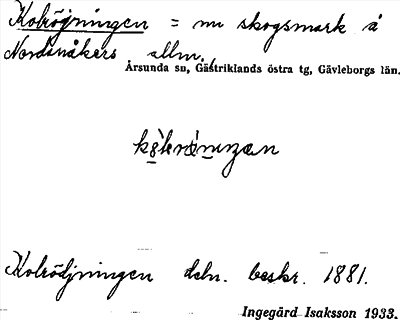 Kolröjningen = nu skogsmark å
Nordanåkers allm.,
Årsunda sn, Gästriklands östra tg, Gävleborgs län.
Kolrödjningen deln. beskr. 1881.
Ingegärd Isaksson 1933.